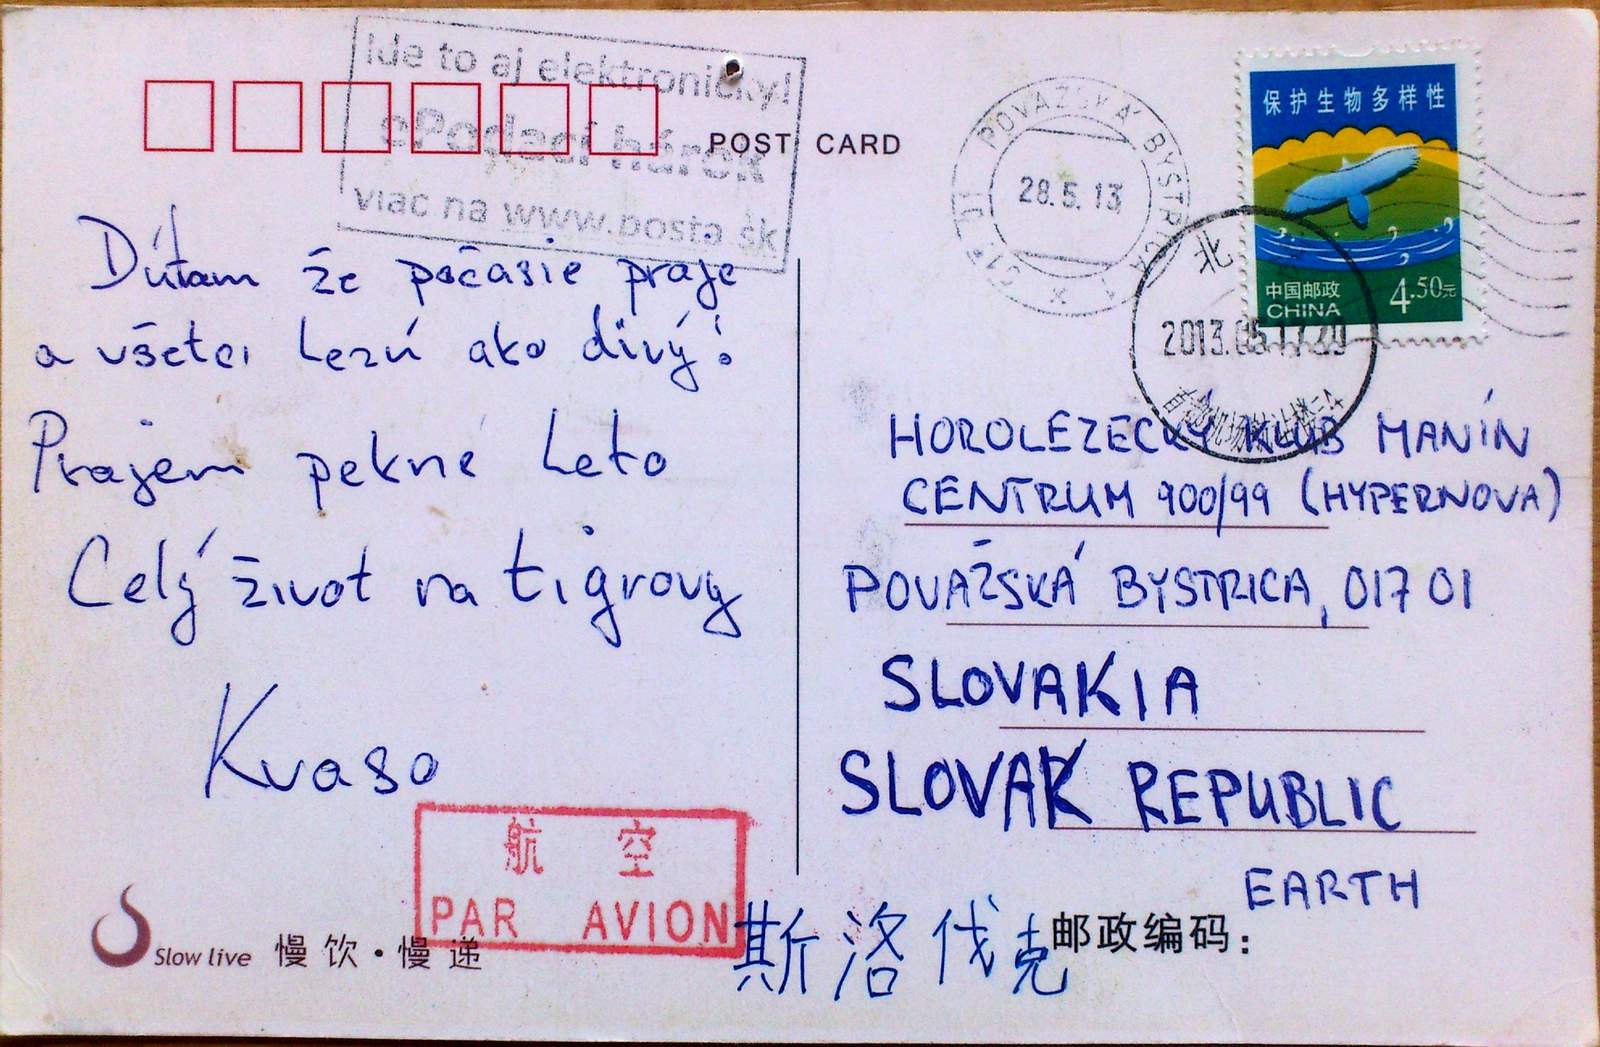 Ide to aj elektronicky!
ePodací hárok
viac na www.posta.sk
POST CARD
Dúfam že počasie praje
a všetci lezú ako divý!
Prajem pekné leto
Celý život na tigrovy
Kvaso
航 空
PAR AVION
Slow live 慢饮·慢递
POVAŽSKÁ BYSTRICA 1
017 01
28.5.13
保护生物多样性
中国邮政
CHINA
4.50元
北
2013.05.17.20
HOROLEZECKÝ KLUB MANÍN
CENTRUM 900/99 (HYPERNOVA)
POVAŽSKÁ BYSTRICA, 017 01
SLOVAKIA
SLOVAK REPUBLIC
EARTH
斯洛伐克
邮政编码：